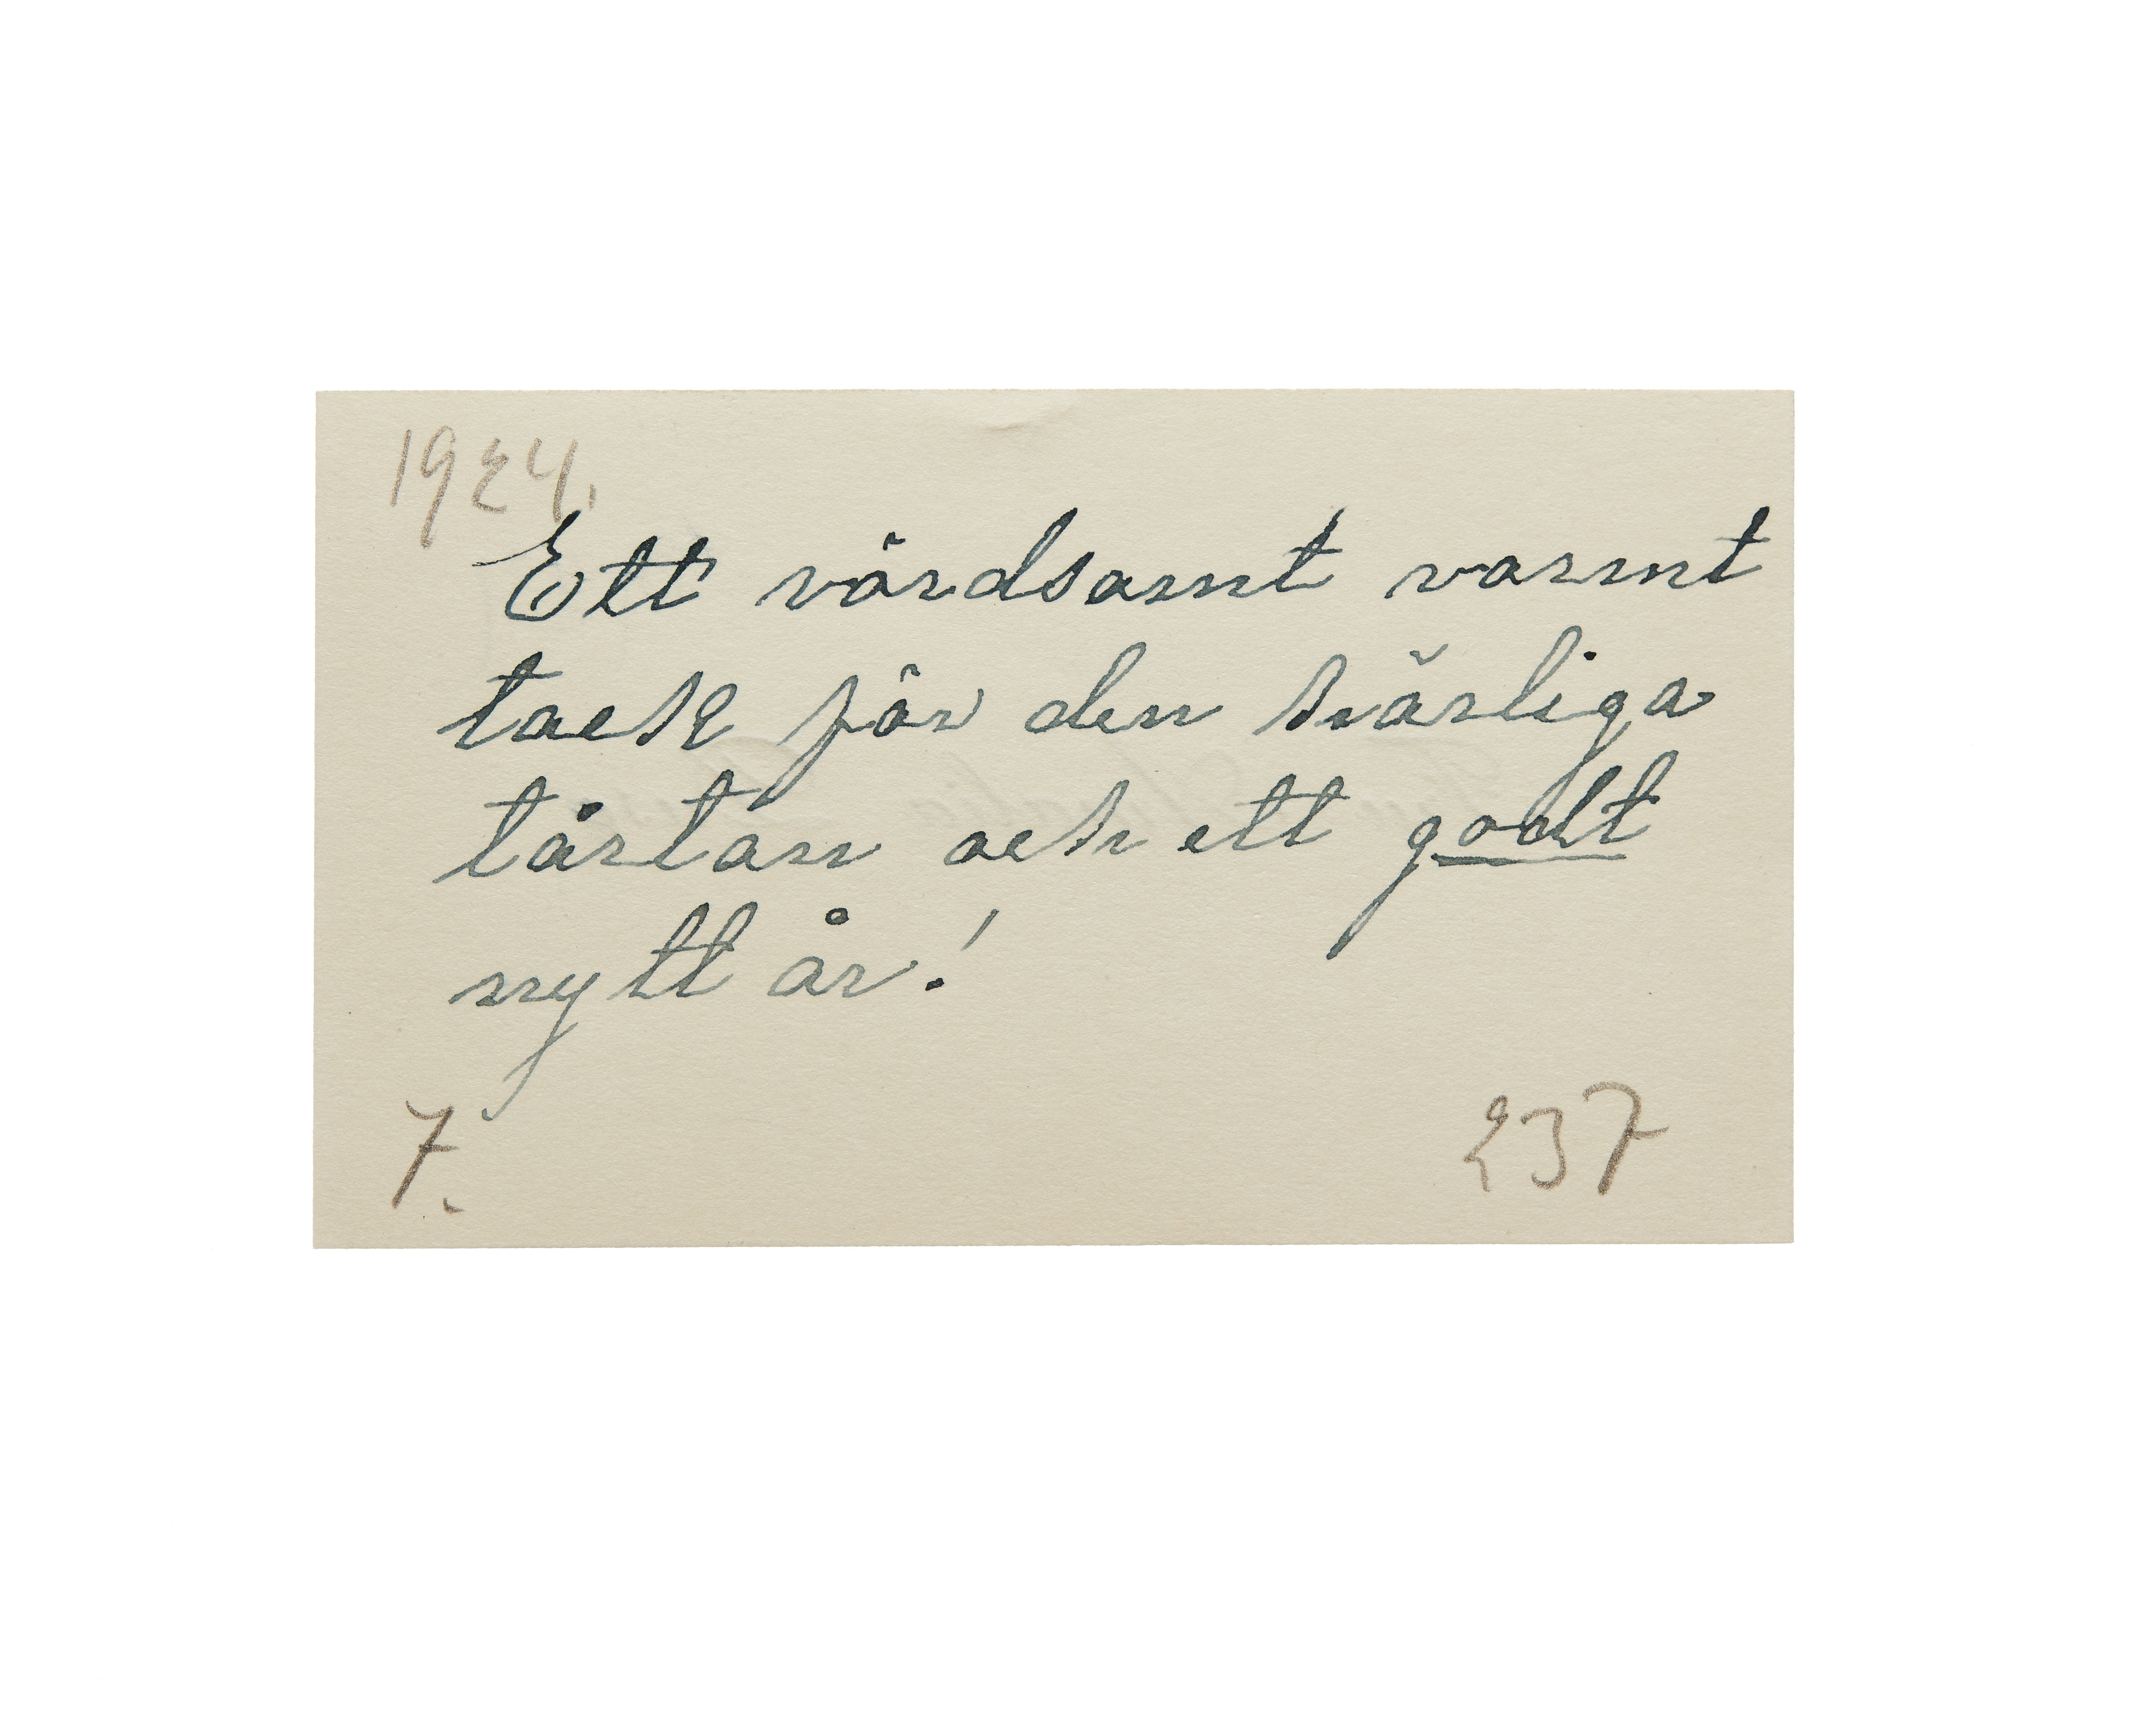 1924.
Ett vördsamt varmt
tack för den härliga
tårtan och ett godt
nytt år!
7.
237